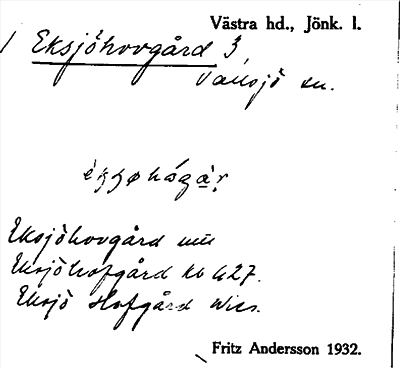 Västra hd., Jönk. l.
1 Eksjöhovgård 3
Vallsjö sn.
Eksjöhovgård
Eksjöhofgård kb 427.
Eksjö Hofgård Wies.
Fritz Andersson 1932.